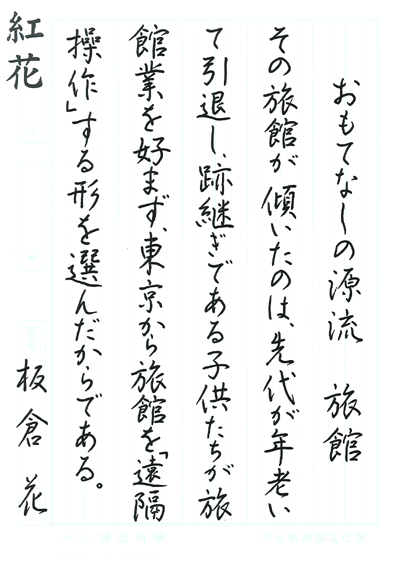 おもてなしの源流　旅館
その旅館が傾いたのは、先代が年老い
て引退し、跡継ぎである子供たちが旅
館業を好まず、東京から旅館を「遠隔
操作」する形を選んだからである。
紅花　板倉花